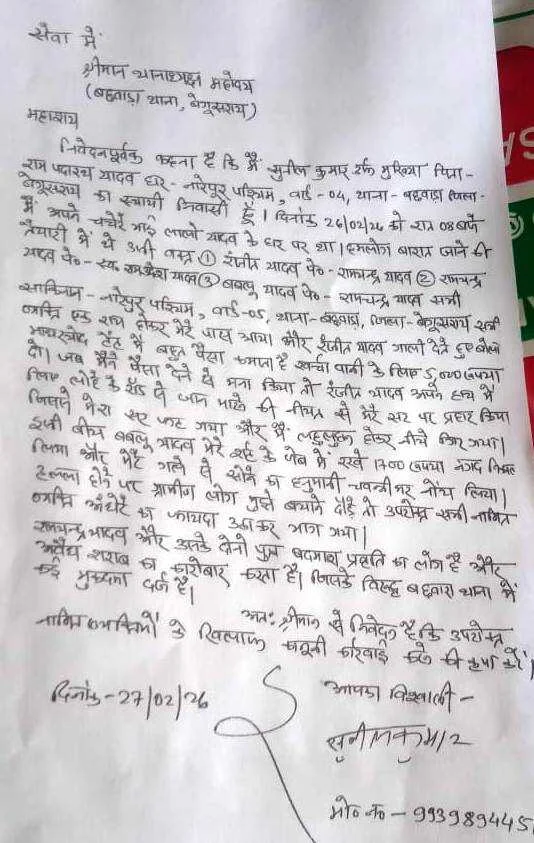 सेवा में
श्रीमान थानाध्यक्ष महोदय
(बछवाड़ा थाना, बेगूसराय)
महाशय
निवेदनपूर्वक कहना है कि मैं सुनील कुमार उर्फ मुखिया पिता-
राम पदारथ यादव घर- नारेपुर पश्चिम, वार्ड-04, थाना- बछवाड़ा जिला-
बेगूसराय का स्थायी निवासी हूँ। दिनांक 26/02/26 को रात 08 बजे
मैं अपने चचेरे भाई लालो यादव के घर पर था। हमलोग बारात जाने की
तैयारी में थे उसी वक्त ① रंजीत यादव पे०- रामचन्द्र यादव ② रामचन्द्र
यादव पे०- स्व. यादव ③ बबलू यादव पे०- रामचन्द्र यादव सभी
साकिनान- नारेपुर पश्चिम, वार्ड-05, थाना- बछवाड़ा, जिला- बेगूसराय सभी
व्यक्ति एक साथ होकर मेरे पास आया और रंजीत यादव गाली देते हुए बोला
टेंट में बहुत पैसा कमाता है खर्चा पानी के लिए 5,000 रुपया
दो। जब मैंने पैसा देने से मना किया तो रंजीत यादव अपने हाथ में
लिए लोहे के रॉड से जान मारने की नीयत से मेरे सर पर प्रहार किया
जिससे मेरा सर फट गया और मैं लहुलुहान होकर नीचे गिर गया।
इसी बीच बबलू यादव मेरे शर्ट के जेब में रखे 1700 रुपया नगद निकाल
लिया और मेरे गले से सोने का हनुमानी नोंच लिया।
हल्ला होने पर ग्रामीण लोग मुझे बचाने दौड़े तो उपरोक्त सभी नामित
व्यक्ति अंधेरे का फायदा उठाकर भाग गया।
रामचन्द्र यादव और उनके दोनों पुत्र बदमाश प्रवृति का लोग है और
अवैध शराब का कारोबार करता है। जिसके विरुद्ध बछवारा थाना में
कई मुकदमा दर्ज है।
अतः श्रीमान से निवेदन है कि उपरोक्त
नामित व्यक्तियों के खिलाफ कानूनी कार्रवाई करने की कृपा करें।
दिनांक-27/02/26
आपका विश्वासी-
सुनील कुमार
मो० न०- 993989445